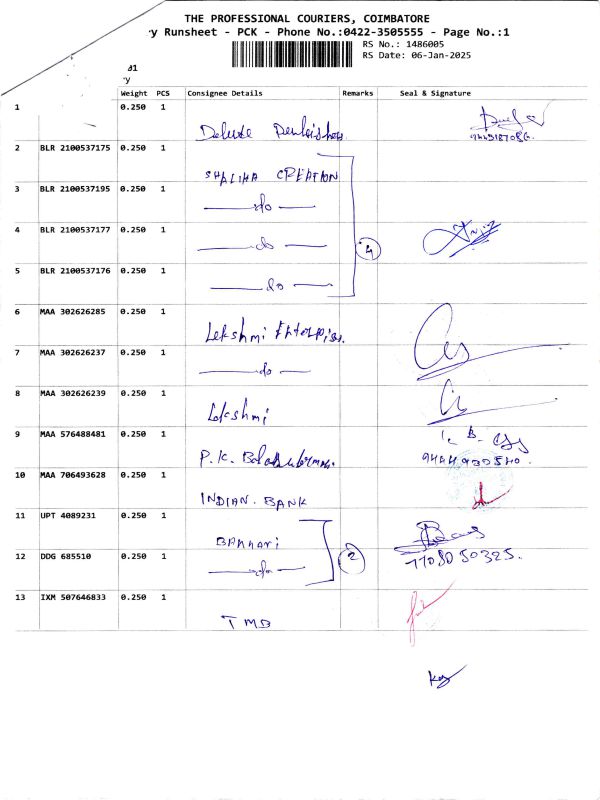 THE PROFESSIONAL COURIERS, COIMBATORE
y Runsheet - PCK - Phone No.:0422-3505555 - Page No.:1
RS No.: 1486005
RS Date: 06-Jan-2025
01
y
Weight PCS Consignee Details Remarks Seal & Signature
1 0.250 1 Deluxe
2 BLR 2100537175 0.250 1 SHALIHA CREATION
3 BLR 2100537195 0.250 1 do
4 BLR 2100537177 0.250 1 do 4
5 BLR 2100537176 0.250 1 do
6 MAA 302626285 0.250 1 Lekshmi Enterprises
7 MAA 302626237 0.250 1 do
8 MAA 302626239 0.250 1 Lakshmi
9 MAA 576488481 0.250 1 P.K.
10 MAA 706493628 0.250 1 INDIAN. BANK
11 UPT 4089231 0.250 1
12 DDG 685510 0.250 1 do 2
13 IXM 507646833 0.250 1 TMB